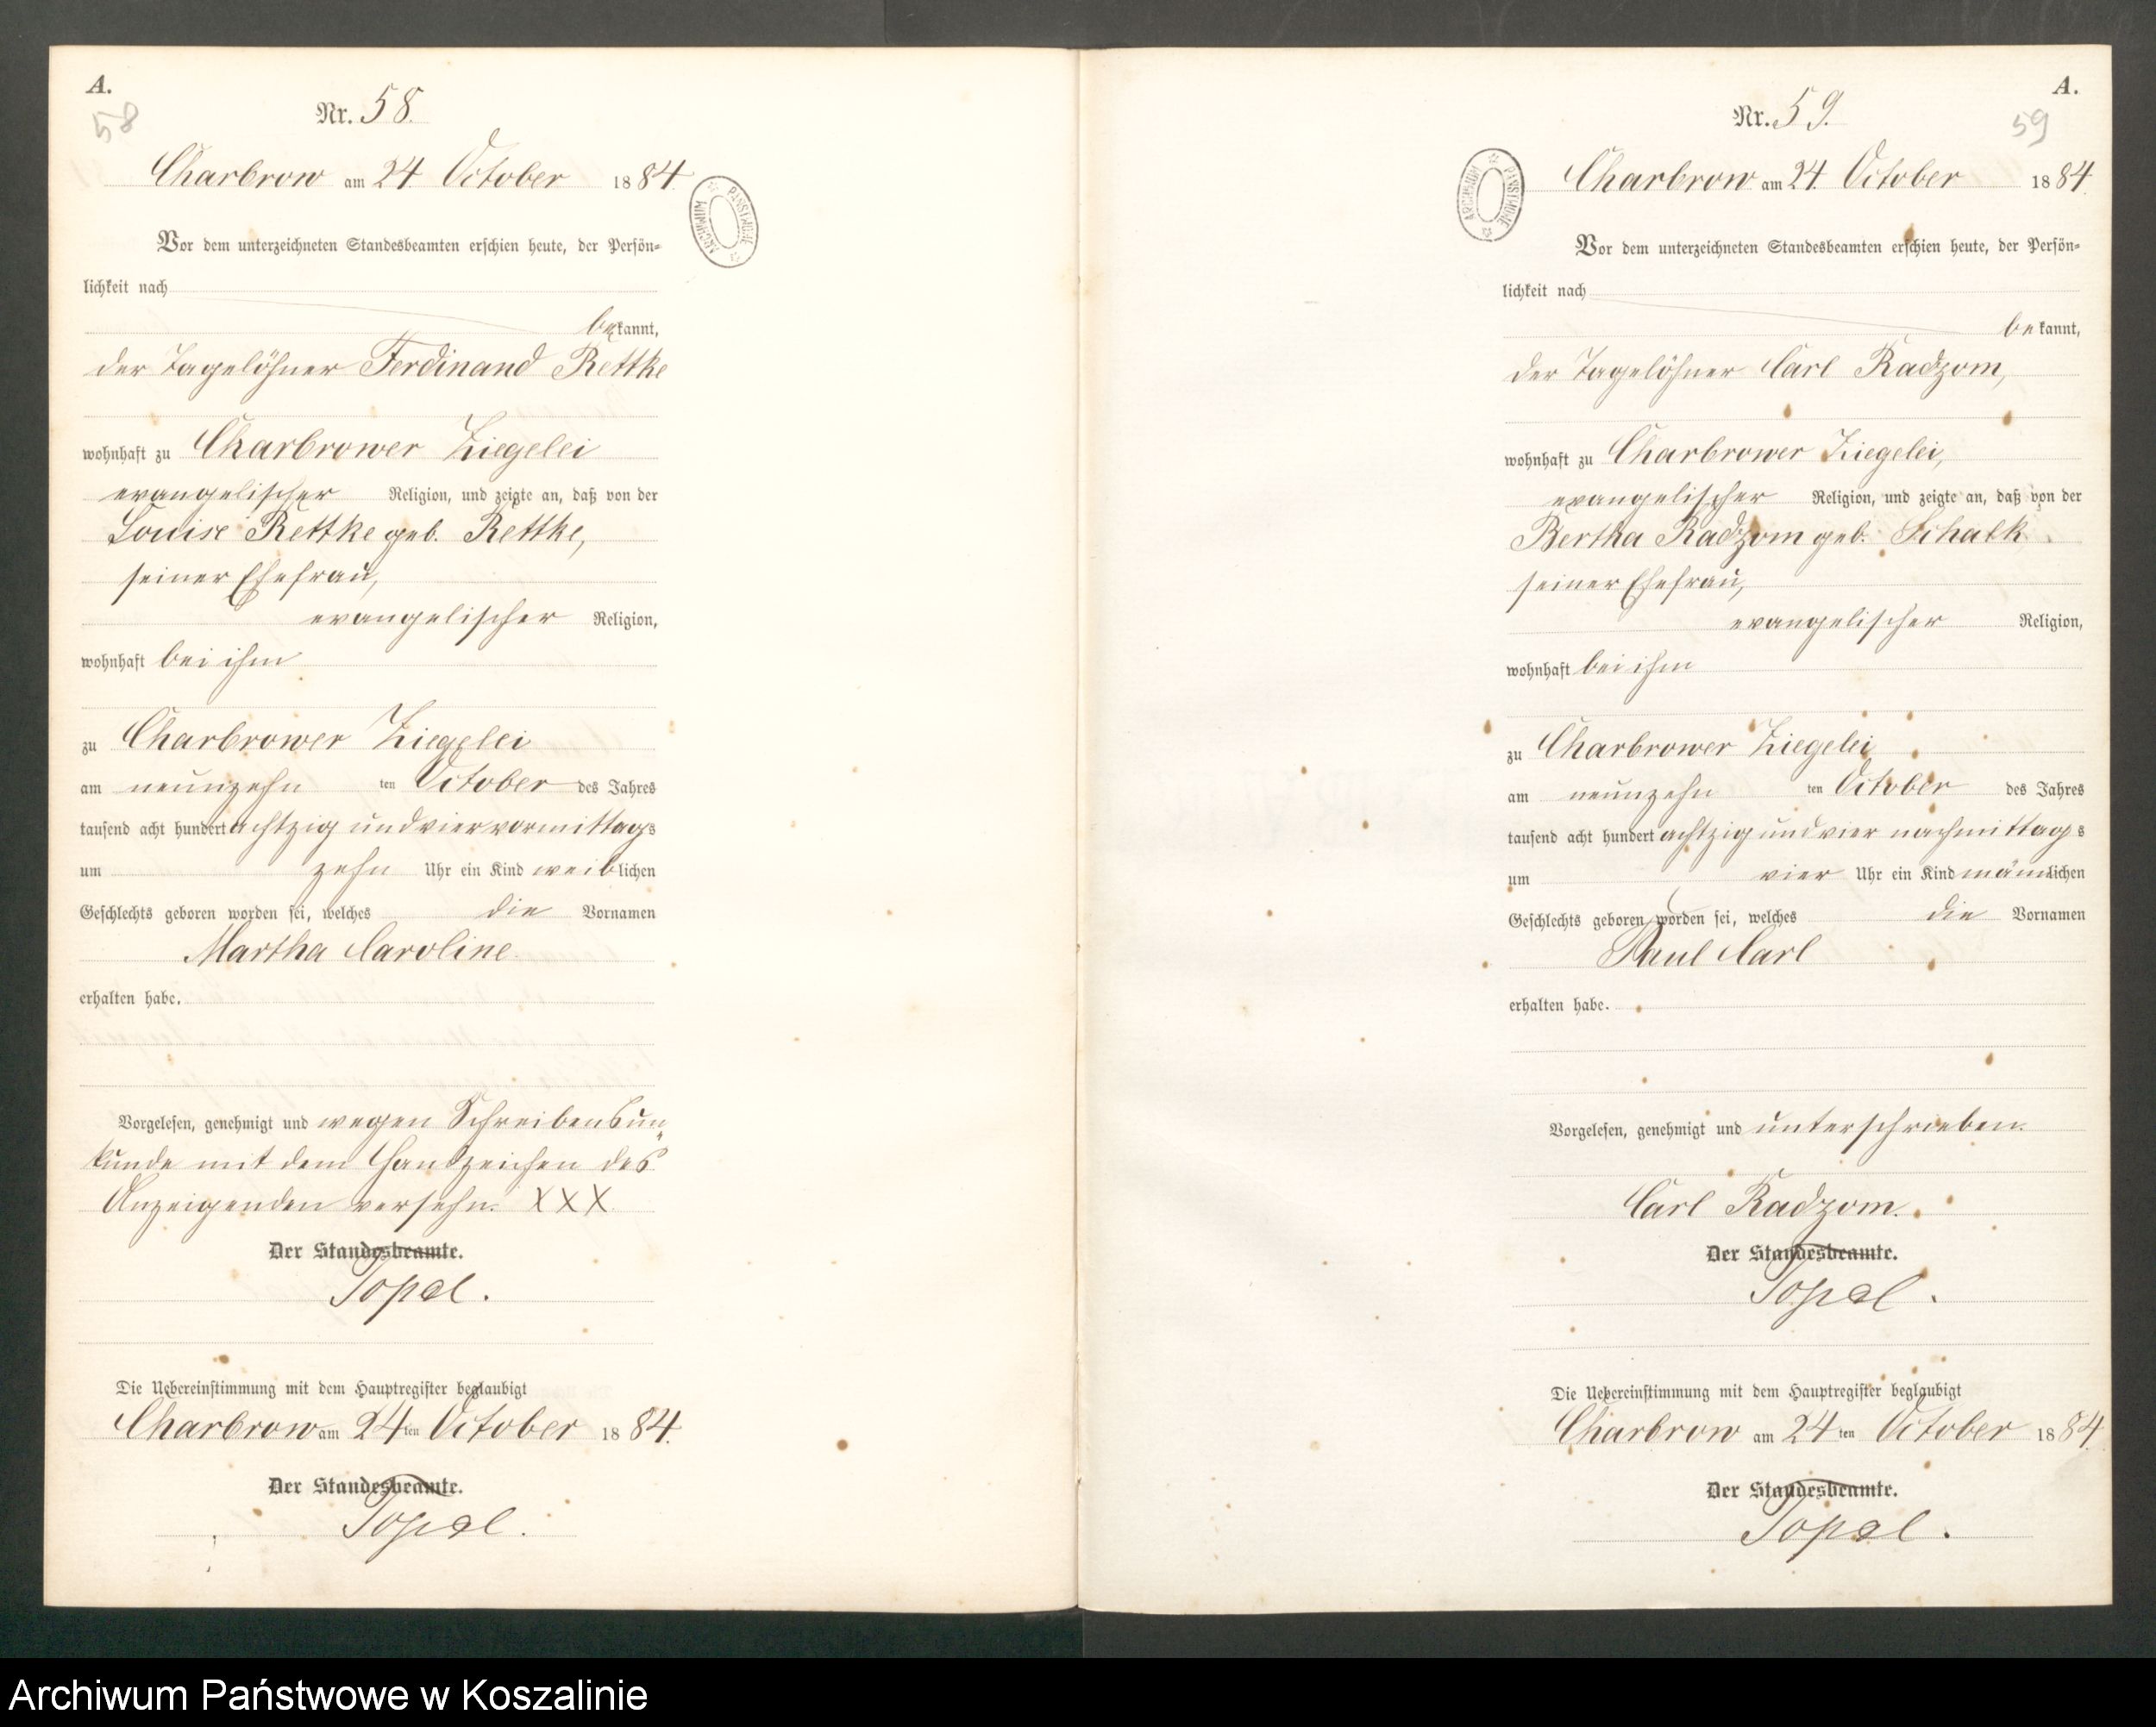 A.
58
Nr. 58.
Charbrow am 24. October 1884.
ARCHIWUM PAŃSTWOWE
Vor dem unterzeichneten Standesbeamten erschien heute, der Persön-
lichkeit nach
bekannt,
der Tagelöhner Ferdinand Rettke
wohnhaft zu Charbrower Ziegelei
evangelischer Religion, und zeigte an, daß von der
Louise Rettke geb. Rettke,
seiner Ehefrau,
evangelischer Religion,
wohnhaft bei ihm
zu Charbrower Ziegelei
am neunzehn ten October des Jahres
tausend acht hundert achtzig und vier vormittags
um zehn Uhr ein Kind weiblichen
Geschlechts geboren worden sei, welches die Vornamen
Martha Caroline
erhalten habe.
Vorgelesen, genehmigt und wegen Schreibensun„
kunde mit dem Handzeichen des
Anzeigenden versehn. XXX.
Der Standesbeamte.
Topel.
Die Uebereinstimmung mit dem Hauptregister beglaubigt
Charbrow am 24ten October 1884.
Der Standesbeamte.
Topel.
A.
59
Nr. 59.
Charbrow am 24. October 1884.
ARCHIWUM PAŃSTWOWE
Vor dem unterzeichneten Standesbeamten erschien heute, der Persön-
lichkeit nach
bekannt,
der Tagelöhner Carl Radzom,
wohnhaft zu Charbrower Ziegelei,
evangelischer Religion, und zeigte an, daß von der
Bertha Radzom geb. Schalk
seiner Ehefrau,
evangelischer Religion,
wohnhaft bei ihm
zu Charbrower Ziegelei
am neunzehn ten October des Jahres
tausend acht hundert achtzig und vier nachmittags
um vier Uhr ein Kind männlichen
Geschlechts geboren worden sei, welches die Vornamen
Paul Carl
erhalten habe.
Vorgelesen, genehmigt und unterschrieben.
Carl Radzom.
Der Standesbeamte.
Topel.
Die Uebereinstimmung mit dem Hauptregister beglaubigt
Charbrow am 24ten October 1884.
Der Standesbeamte.
Topel.
Archiwum Państwowe w Koszalinie